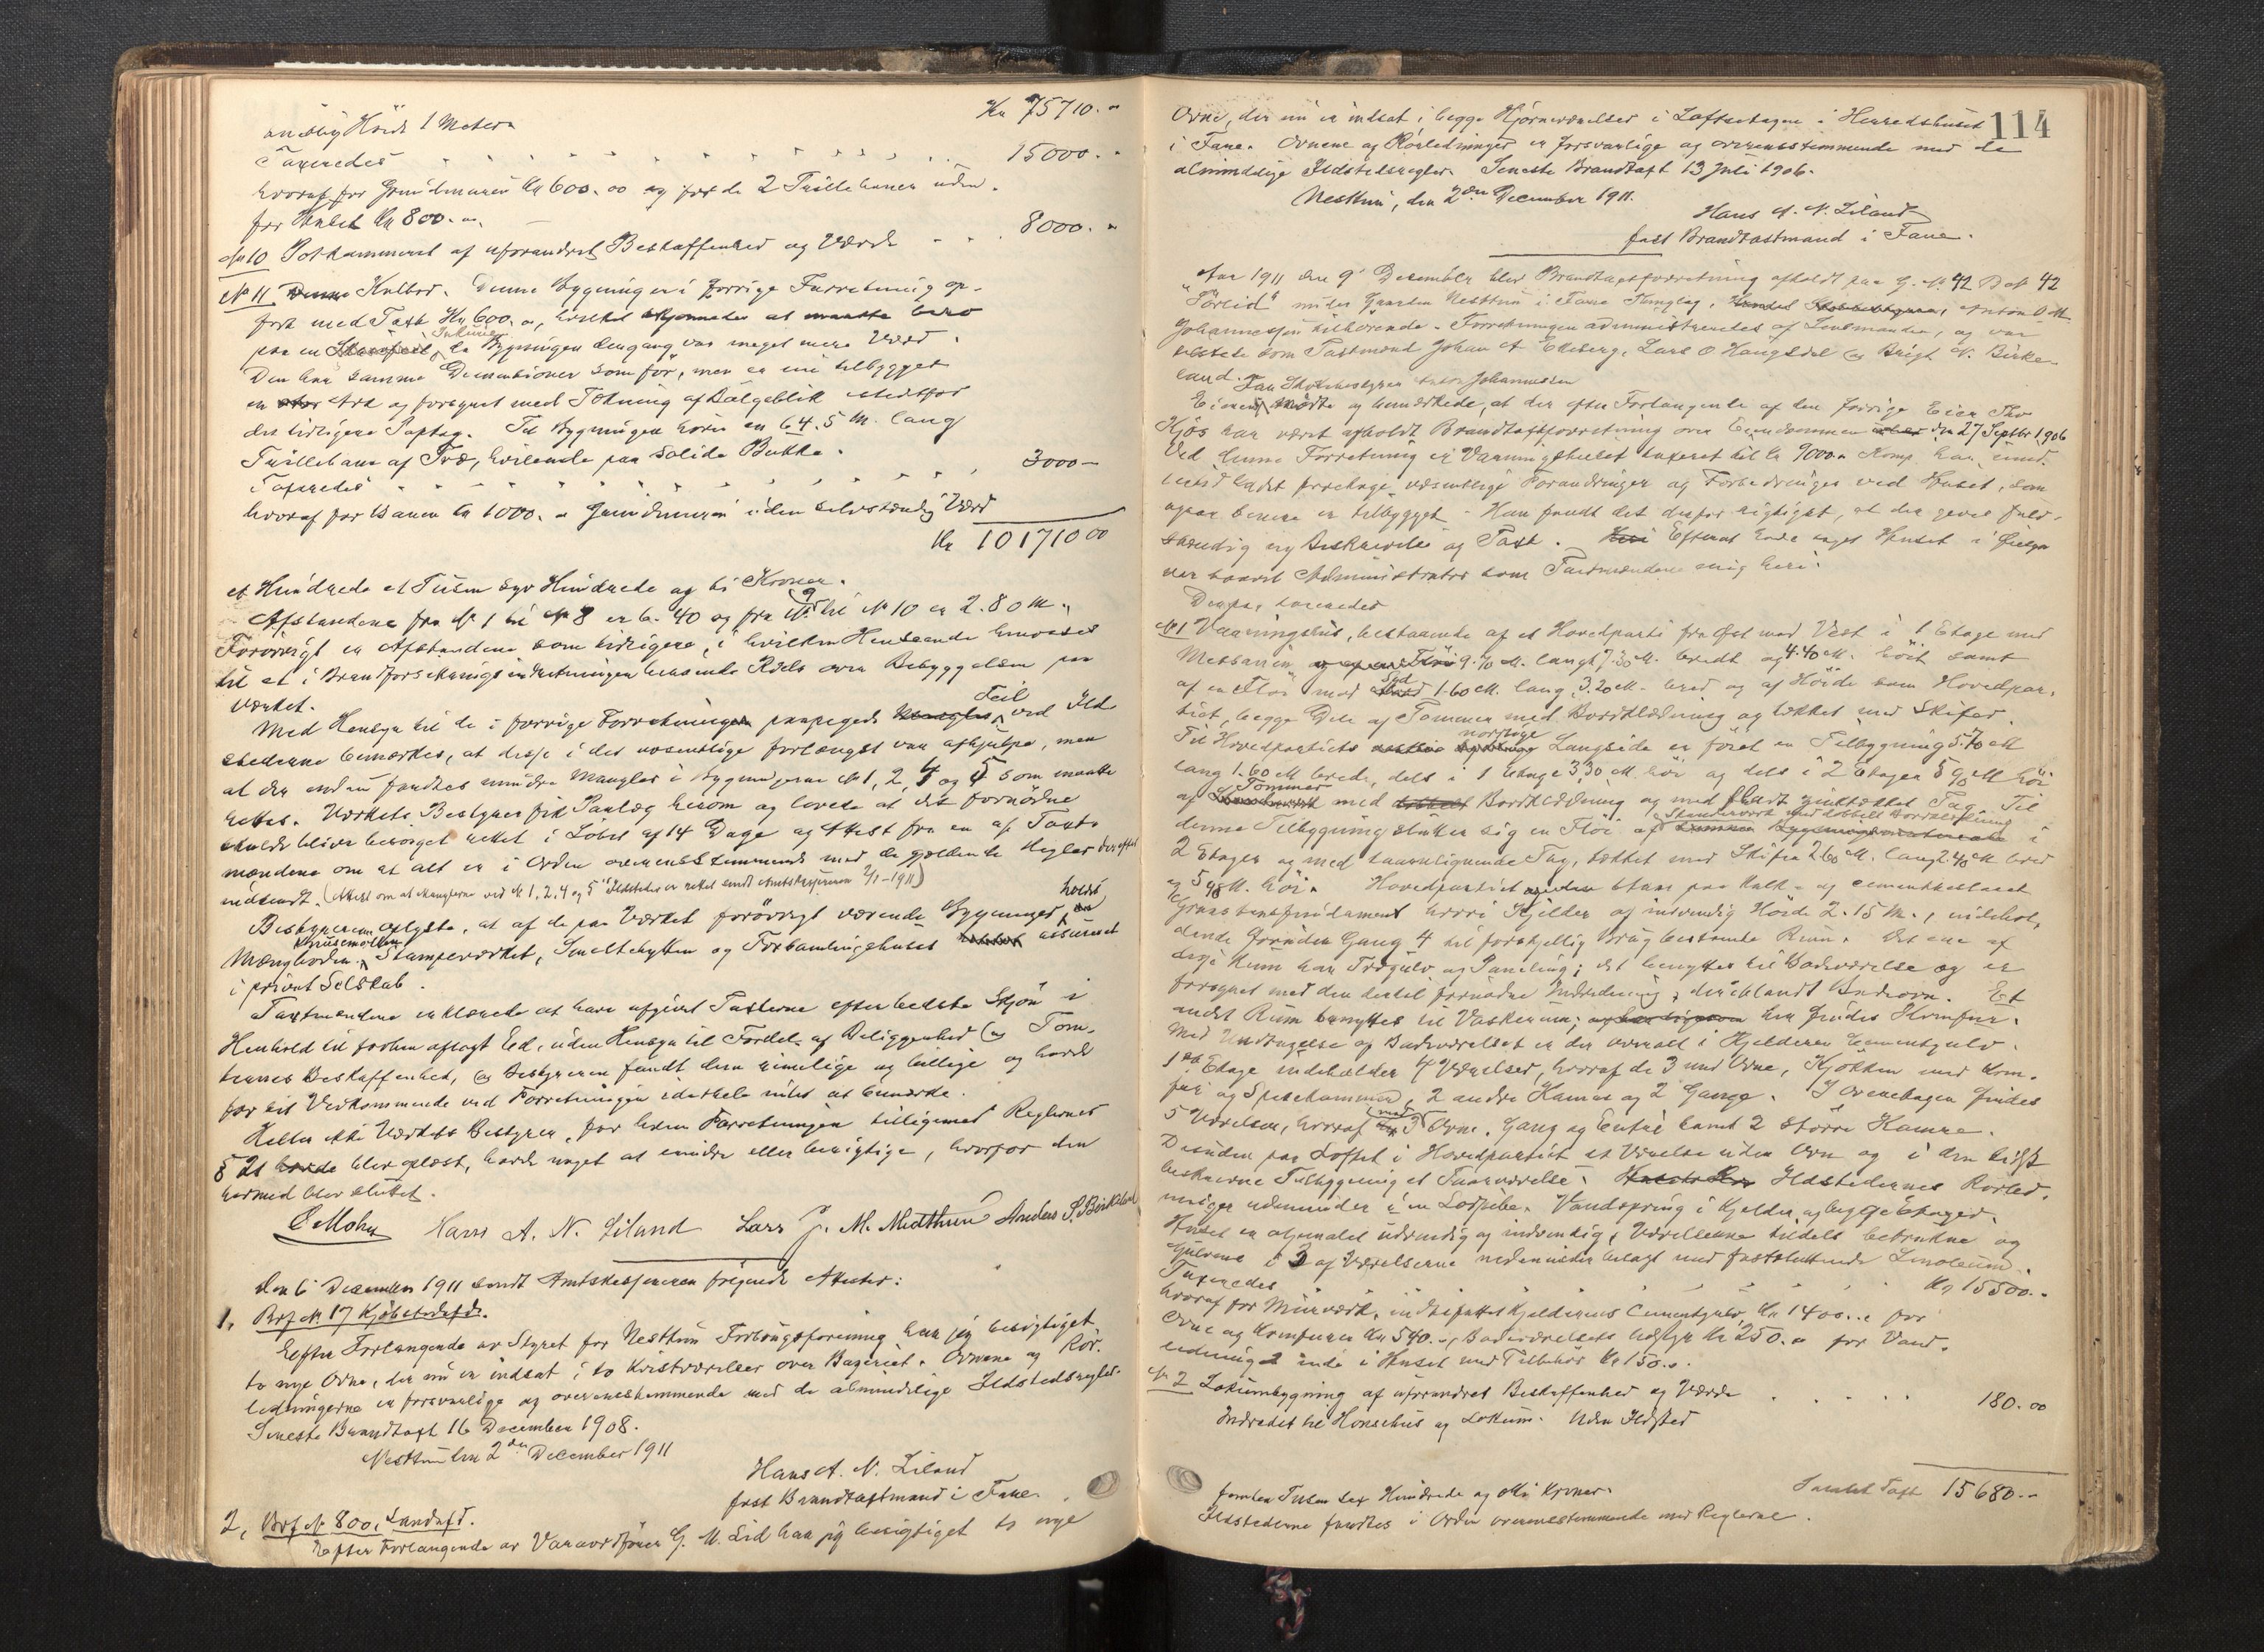 Kr 75710. "
Høide 1 Meter
Taxeredes " " " " " " " " " " " 15000. "
hvoraf for Grundmuren Kr 600.00 og for de 2 Trillebaner uden-
for Huset Kr 800. "
No 10 Potkammeret af uforandret Beskaffenhed og Værdi " " . 8000. "
No 11 Kulbod. Denne Bygning er i forrige Forretning op-
ført med Taxt Kr 600. ", hvilket at bero
paa en Inkurie, da Bygningen dengang var meget mere Værd.
Den har samme Dimensioner som før, men er nu tilbygget
en Ark og forsynet med Tækning af Bølgeblik istedfor
det tidligere Paptag. Til Bygningen hører en 64.5 M. lang
Trillebane af Træ, hvilende paa solide Bukke.
Taxeredes " " " " " " " " " 3000 —
hvoraf for Banen Kr 1000. " Grundmuren uden selvstændig Værd
Kr 101710 00
et Hundrede et Tusen syv Hundrede og ti Kroner.
Afstandene fra No 1 til No 8 er 6.40 og fra No 9 til No 10 er 2.80 M.
Forøvrigt er Afstandene som tidligere, i hvilken Henseende henvises
til et i Brandforsikringsindretningen beroende Rids over Bebyggelsen paa
Værket.
Med Hensyn til de i forrige Forretning paapegede Feil ved Ild-
stederne bemærkes, at disse i det væsentlige forlængst var afhjulpne, men
at der endnu fandtes mindre Mangler i Bygningerne No 1, 2, 4 og 5 som maatte
rettes. Værkets Bestyrer fik Paalæg herom og lovede at det fornødne
skulde bliver besørget rettet i Løbet af 14 Dage og Attest fra en af Taxt-
mændene om at alt er i Orden overensstemmende med de gjældende Regler derefter
indsendt. (Attest om at Manglerne ved No 1, 2, 4 og 5 Ildsteder er rettet sendt Amtskassereren 2/1-1911)
Bestyreren oplyste, at af de paa Værket forøvrigt værende Bygninger holdes
Mængboden, Knusemøllen, Stampeværket, Smeltehytten og Forsamlingshuset assureret
i privat Selskab.
Taxtmændene erklærede at have afgivet Taxterne efter bedste Skjøn i
Henhold til forhen aflagt Ed, uden Hensyn til Fordel af Beliggenhed og Tom-
ternes Beskaffenhed, og Bestyreren fandt dem rimelige og billige og havde
for sit Vedkommende ved Forretningen idethele intet at bemærke.
Heller ikke Værkets Bestyrer, for hvem Forretningen tilligemed Reglernes
§ 21 blev oplæst, havde noget at erindre eller berigtige, hvorfor den
hermed blev sluttet.
O Mohn Hans A. N. Liland Lars J. M. Midthun Anders P. Birkeland
Den 6 December 1911 sendt Amtskassereren følgende Attester:
1, Brf. No 17 Kjøbstadafd.
Efter Forlangende av Styret for Nesttun Forbrugsforening har jeg besigtiget
to nye Ovne, der nu er indsat i to Kvistværelser over Bageriet. Ovnene og Rør-
ledningerne er forsvarlige og overensstemmende med de almindelige Ildstedsregler.
Seneste Brandtaxt 16 December 1908.
Nesttun den 2den December 1911
Hans A. N. Liland
fast Brandtaxtmand i Fane.
2, Brf. No 800, Landafd.
Efter Forlangende av Varaordfører G. M. Lid har jeg besigtiget to nye
114
Ovne, der nu er indsat i begge Hjørneværelser i Loftsetagen i Herredshuset
i Fane. Ovnene og Rørledninger er forsvarlige og overensstemmende med de
almindelige Ildstedsregler. Seneste Brandtaxt 13 Juli 1906.
Nesttun, den 2den December 1911.
Hans A. N. Liland
fast Brandtaxtmand i Fane.
Aar 1911 den 9' December blev Brandtaxtforretning afholdt paa G. No. 42 B. No 42
"Solid" under Gaarden Nesttun i Fane Thinglag, Anton O M
Johannessen tilhørende. Forretningen administreredes af Lensmanden, og var
tilstede som Taxtmænd Johan A Elleberg, Lars O Haugsdal og Brigt N. Birke-
land.
Eieren Anton Johannessen mødte og bemærkede, at der efter Forlangende af den forrige Eier Thv
Kjøs har været afholdt Brandtaxtforretning over Eiendommen den 27 Septbr 1906
Ved denne Forretning er Vaaningshuset taxeret til Kr 9000. " Komp. har imid-
lertid ladet foretage væsentlige Forandringer og Forbedringer ved Huset, som
er tilbygget. Han fandt det derfor rigtigst, at der gives fuld-
stændig ny Beskrivelse og Taxt. Efterat have taget Huset i Øiesyn
var saavel Administrator som Taxtmændene enig heri.
Derpaa taxeredes
No 1 Vaaningshus, bestaaende af et Hovedparti fra Øst mod Vest i 1 Etage med
Messanin 9.70 M. langt 7.30 M. bredt og 4.40 M. høit samt
af en Fløi mod Syd 1.60 M. lang, 3.20 M. bred og af Høide som Hovedpar-
tiet, begge Dele af Tømmer med Bordklædning og tækket med Skifer.
Til Hovedpartiets nordlige Langside er føiet en Tilbygning 5.70 M
lang 1.60 M. brede, dels i 1 Etage 3.30 M. høi og dels i 2 Etager 5.90 M høi
af Tømmer med Bordklædning og med fladt zinktækket Tag. Til
denne Tilbygning slutter sig en Fløi af Stenderværk med dobbelt Bordklædning i
2 Etager og med taarnlignende Tag, tækket med Skifer 2.60 M. lang 2.40 M bred
og 5.90 M. høi. Hovedpartiet staar paa Kalk- og cementkastaret
Graastensfundament hvori Kjelder og indvendig Høide 2.15 M., indehol-
dende foruden Gang 4 til forskjellig Brug bestemte Rum. Det ene af
disse Rum har Trægulv og Paneling; det benyttes til Badeværelse og er
forsynet med den dertil fornødne Indredning, deriblandt Badeovn. Et
andet Rum benyttes til Vaskerum; her findes Komfur.
Med Undtagelse af Badeværelset er der overalt i Kjelderen Cementgulv.
1ste Etage indeholder 4 Værelser, hvoraf de 3 med Ovne, Kjøkken med Kom-
fur og Spisekammer, 2 andre Kamre og 2 Gange. I Ovenetagen findes
5 Værelser, hvoraf 3 med Ovne, Gang og Entré samt 2 større Kamre.
Desuden paa Loftet i Hovedpartiet et Værelse uden Ovn og i den sidst
beskrevne Tilbygning et Taarnværelse. Ildstedernes Rørled-
ninger udmunder i en Lodpibe. Vandspring i Kjelder og begge Etager.
Huset er oljemalet udvendig og indvendig, Værelserne tildels betrukne og
Gulvene i 3 af Værelserne nedenunder belagt med fastsluttende Linoleum.
Taxeredes " " " " " Kr 15500. "
hvoraf for Murværk, indbefattet Kjelderens Cementgulv, Kr 1400. " for
Ovne og Komfurer Kr 540. ", Badeværelsets Udstyr Kr 250. " for Vand-
ledning inde i Huset med Tilbehør Kr 150. "
No 2 Lokumbygning af uforandret Beskaffenhed og Værdi . . . . 180.00
Indredet til Hønsehus og Lokum. Uden Ildsted
Samlet Taxt 15680. "
femten Tusen sex Hundrede og otti Kroner.
Ildstederne fandtes i Orden overensstemmende med Reglerne.